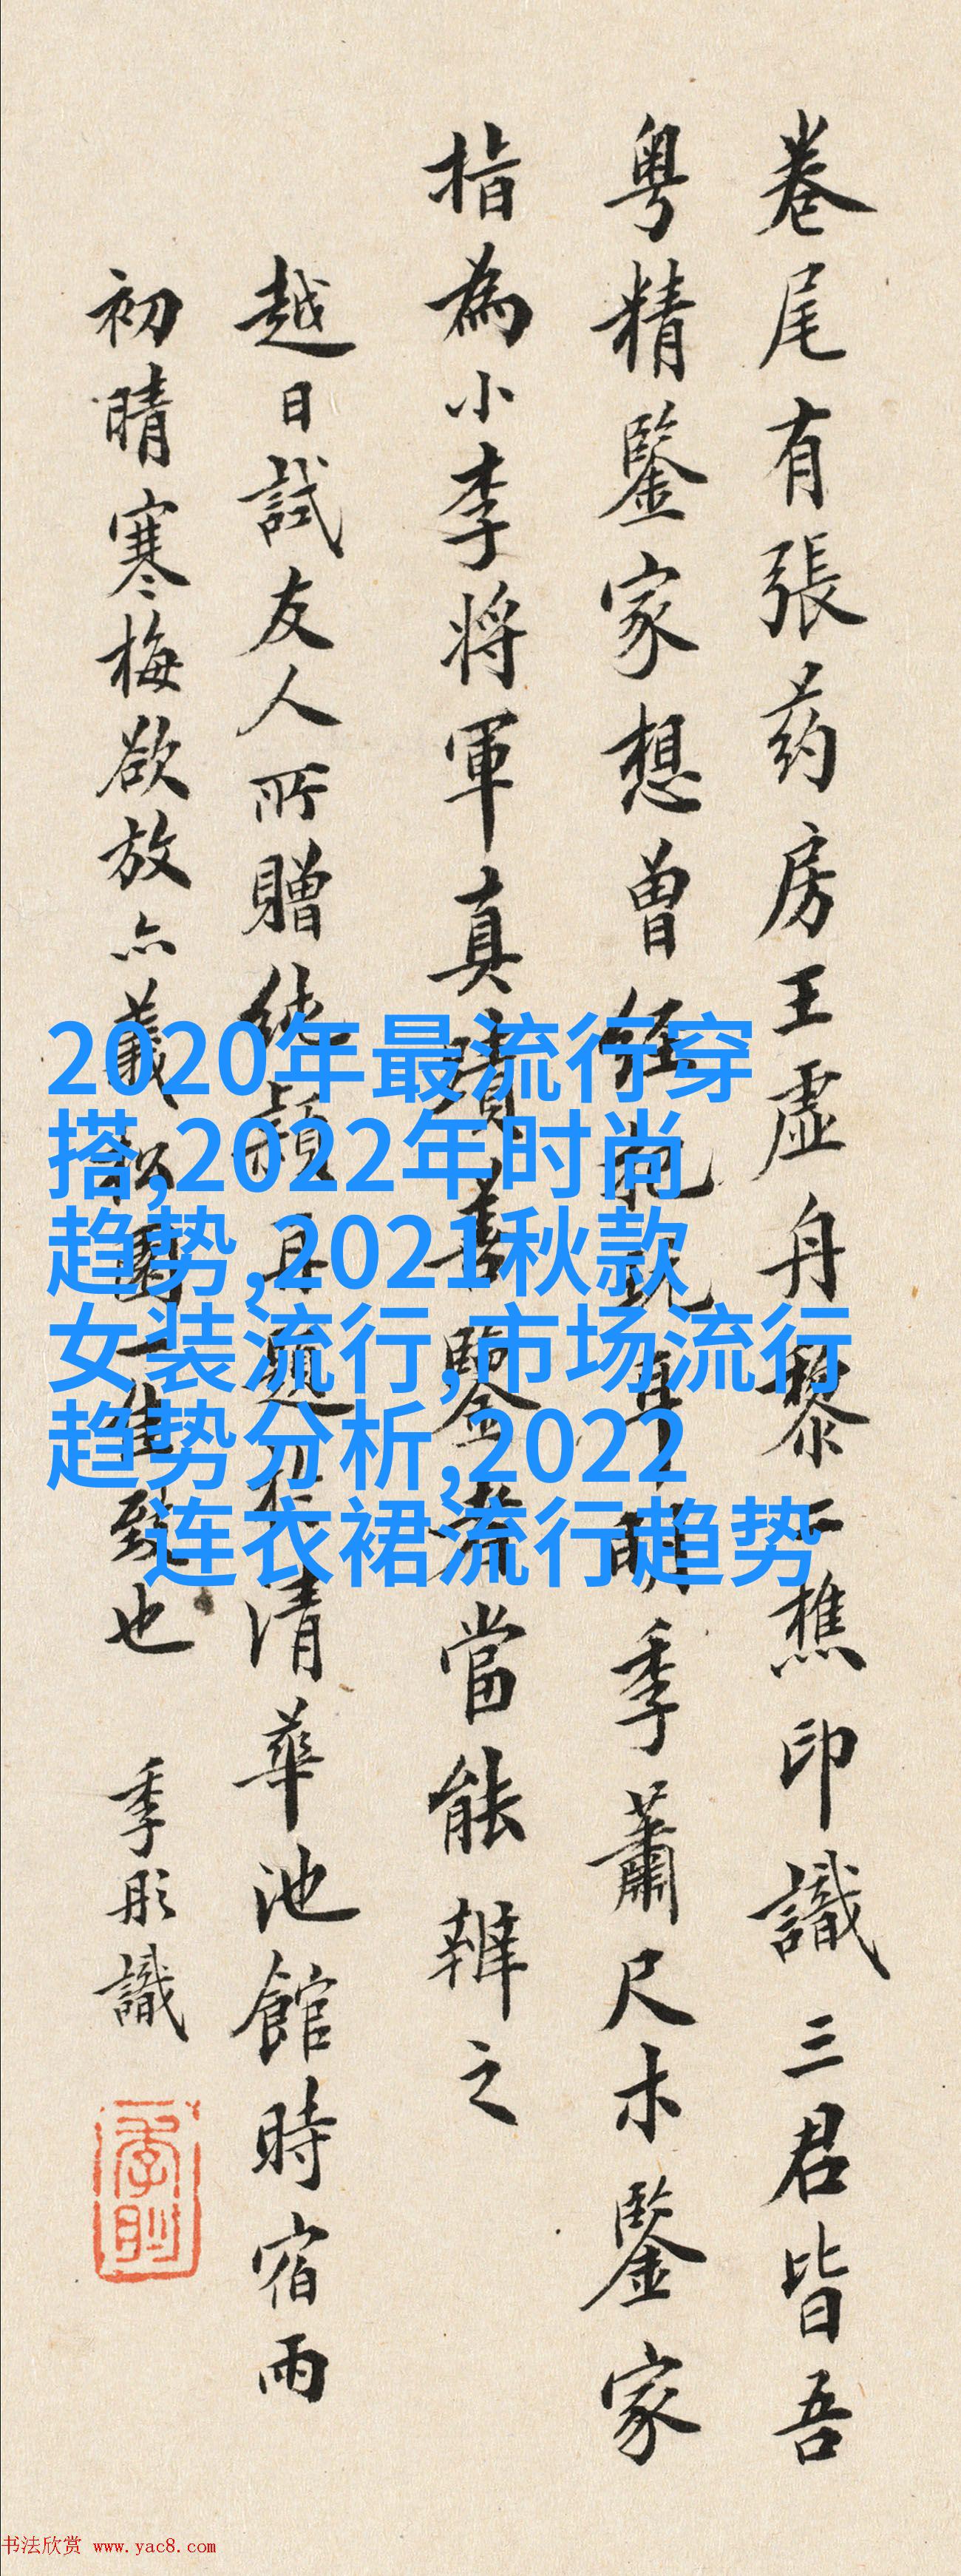 卷尾有張药房王虛舟黎二樵印識三君皆吾
粤精鑒家想曾經

季蕭尺木鑒家
指為小李將軍真蹟善鑒者當能辨之
越日試友人所贈純穎再題於清華池館時宿雨
初晴寒梅欲放亦羲

致也
季彤識
2020年最流行穿
搭,2022年时尚
趋势,2021秋款
女装流行,市场流行
趋势分析,2022
连衣裙流行趋势
书法欣赏 www.yac8.com